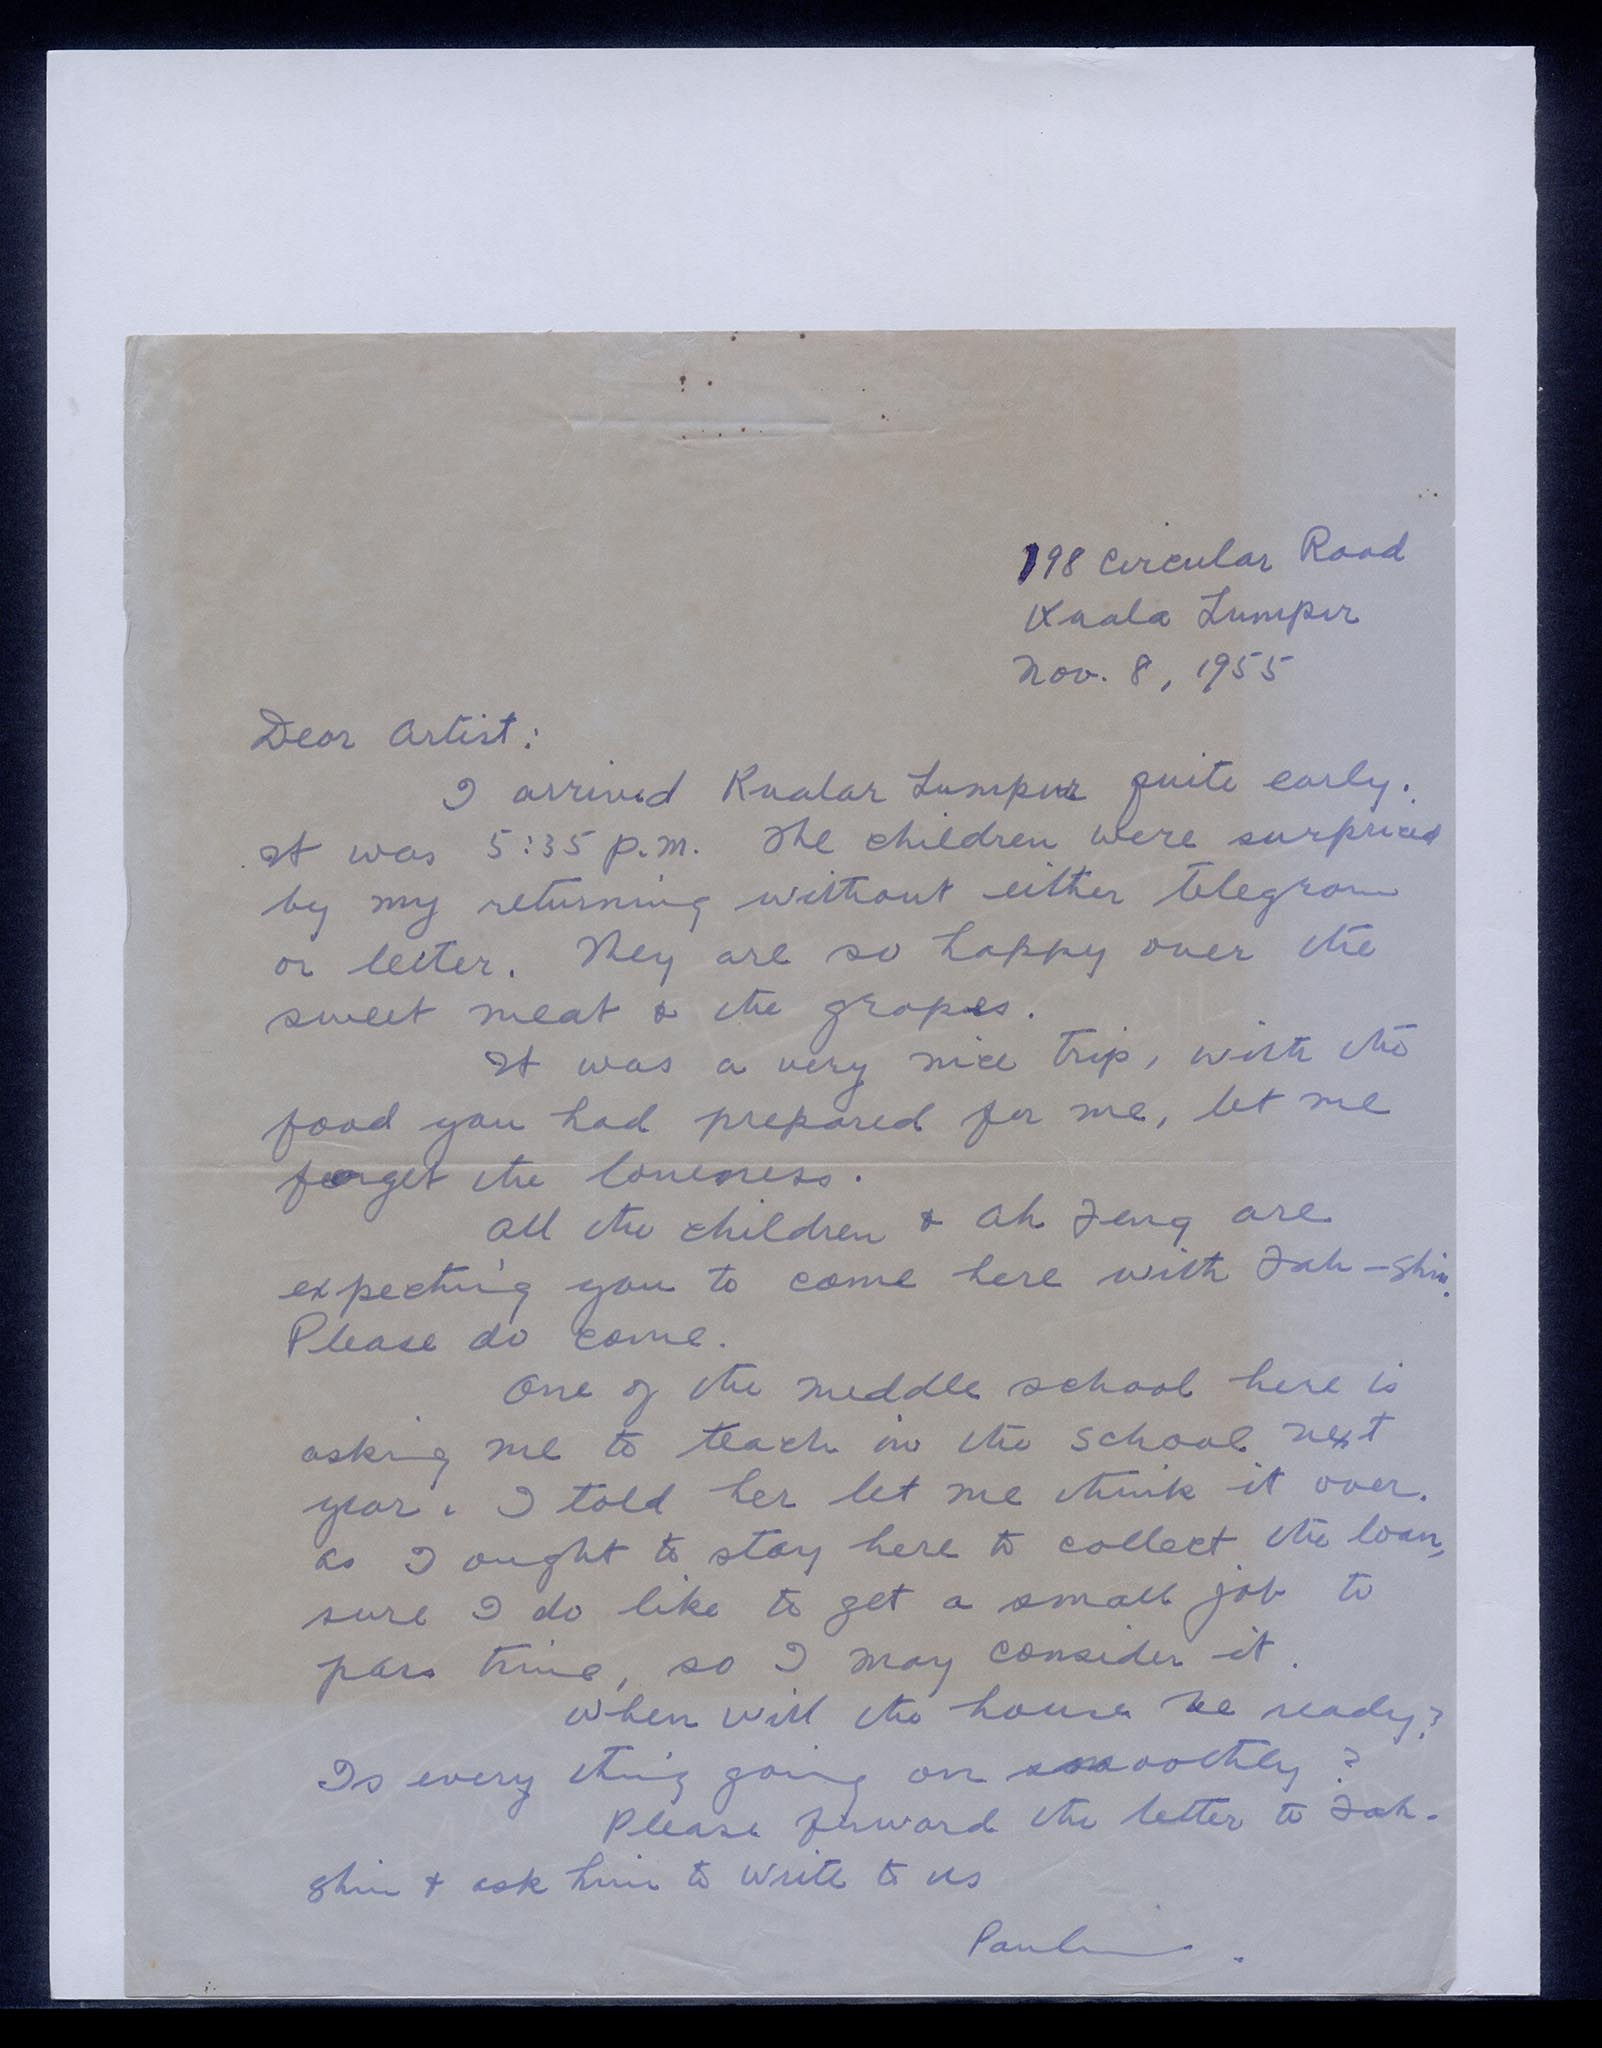 198 Circular Road
Kuala Lumpur
Nov. 8, 1955
Dear Artist:
I arrived Kualar Lumpur quite early.
It was 5:35 p.m. The children were surpriced
by my returning without either telegram
or letter. They are so happy over the
sweet meat & the grapes.
It was a very nice trip, with the
food you had prepared for me, let me
forget the loneness.
All the children & Ah Feng are
expecting you to come here with Fah-Shin.
Please do come.
One of the meddle school here is
asking me to teach in the school next
year. I told her let me think it over.
As I ought to stay here to collect the loan,
sure I do like to get a small job to
pass time, so I may consider it.
When will the house be ready?
Is every thing going on smoothly?
Please forward the letter to Fah-
Shin & ask him to write to us
Pauline.